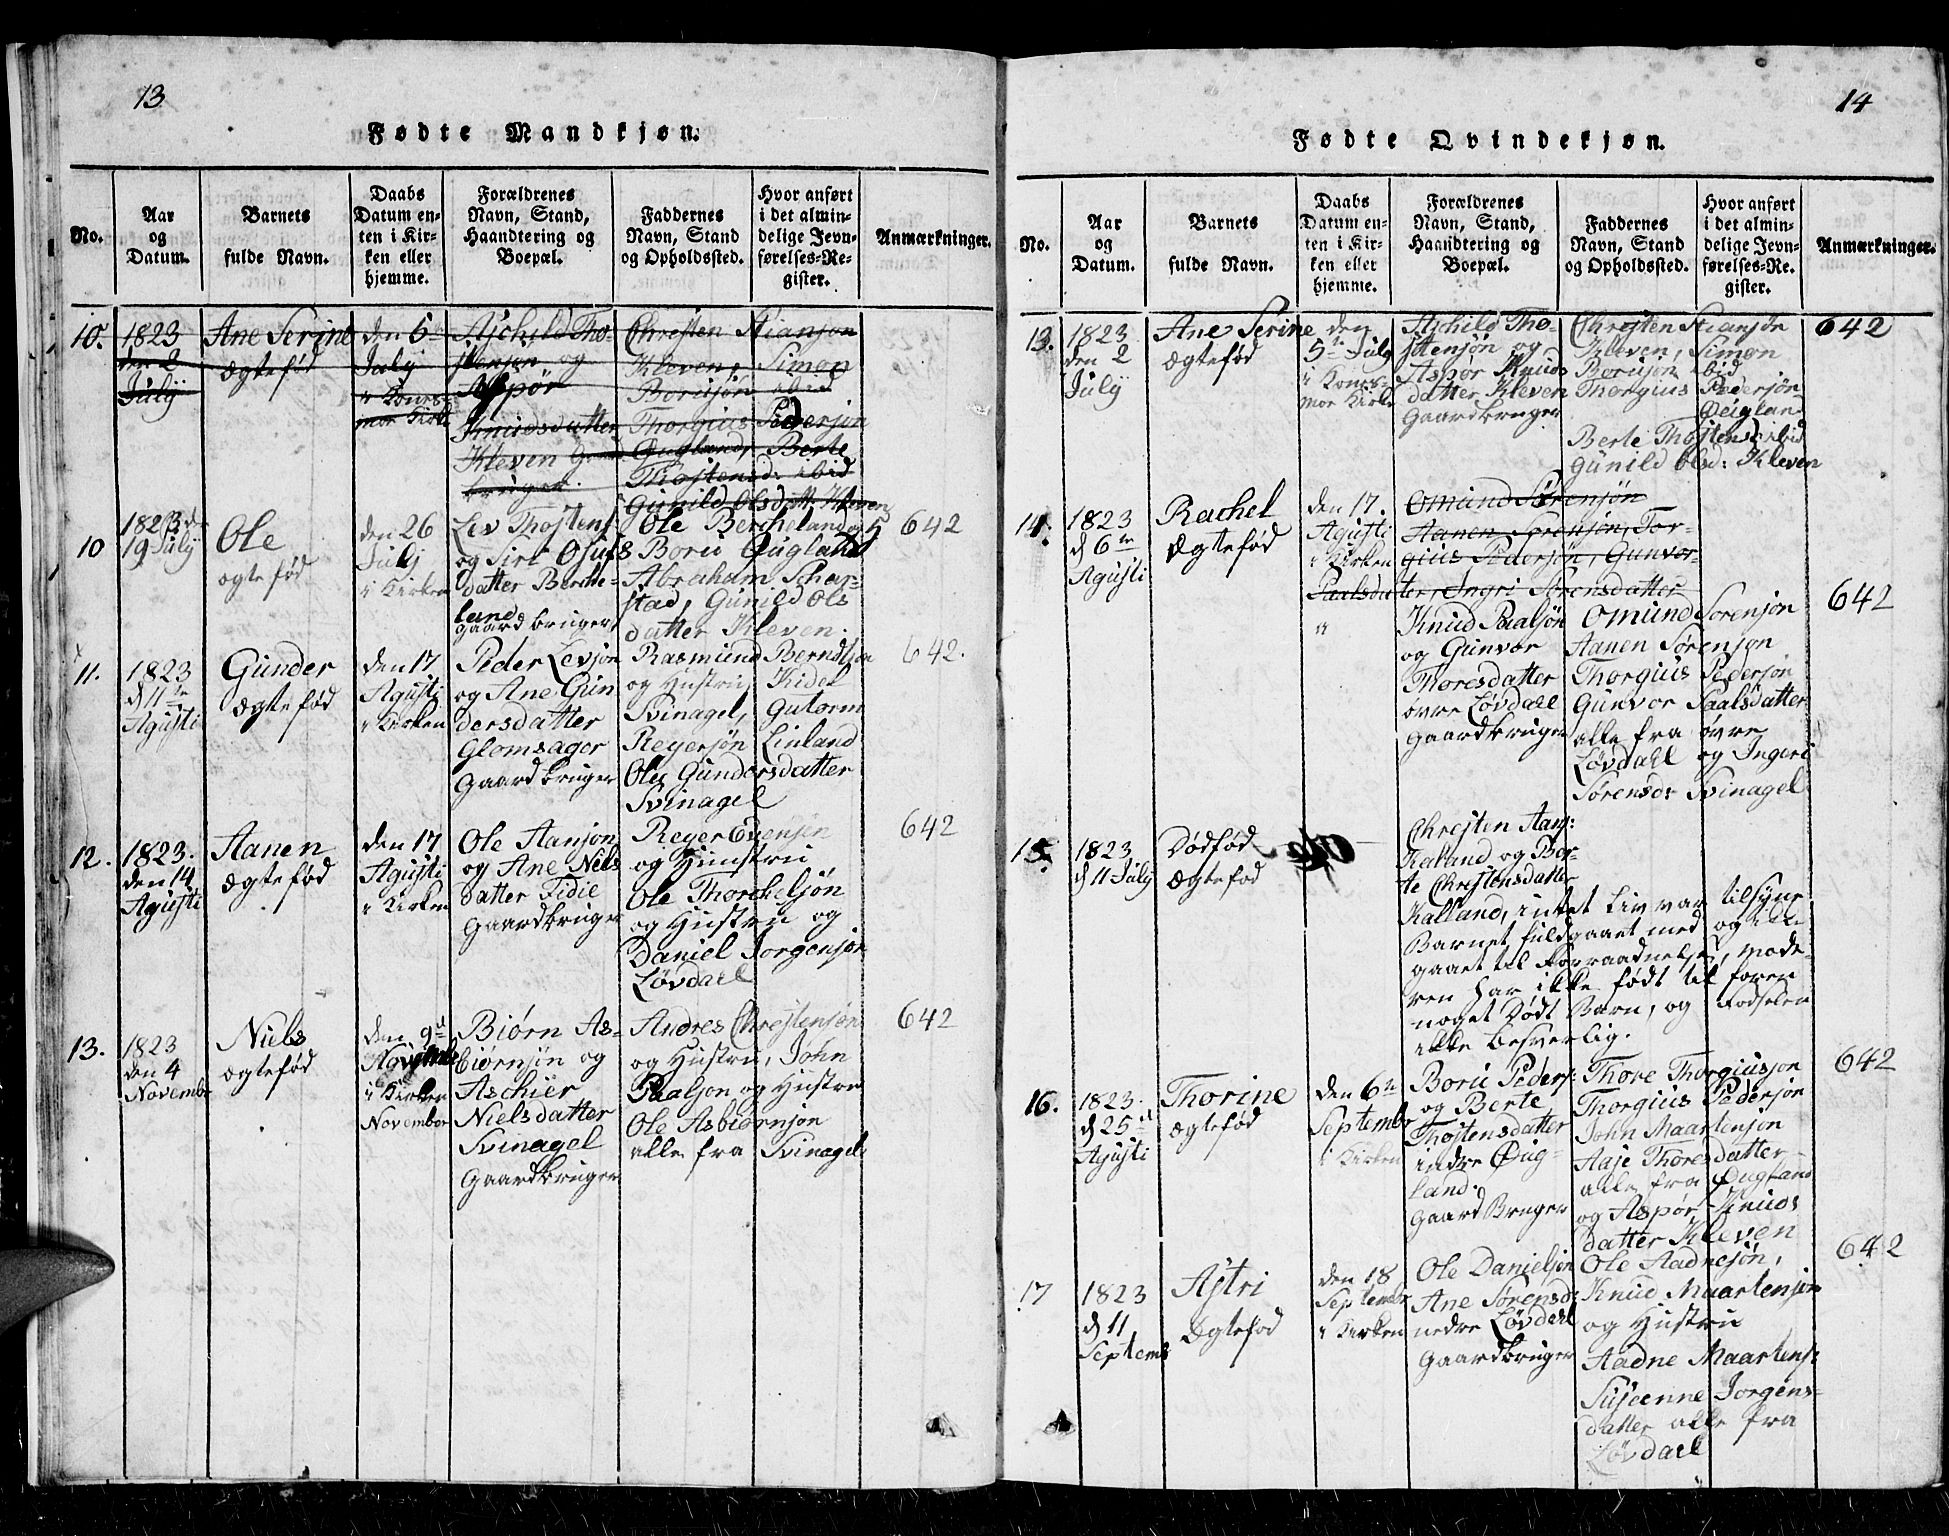 13
Fødte Mandkjøn.
No.
Aar
og
Datum.
Barnets
fulde Navn.
Daabs
Datum en-
ten i Kir-
ken eller
hjemme.
Forældrenes
Navn, Stand,
Haandtering og
Boepæl.
Faddernes
Navn, Stand
og Opholdssted.
Hvor anført
i det almin-
delige Jevn-
førelses-Re-
gister.
Anmærkninger.
10.
1823
den 2
July
Ane Serine
ægtefød
den 5
July
i Kones-
mor Kirke
Aschild Tho-
stensøn og
Aspør
Knudsdatter
Kleven Gaard
bruger.
Chresten Stiansøn
Kleven, Simon
Borusøn ibid
Thorgius Pedersøn
Øugland, Berte
Thostensd: ibid
Gunild Olsdatt: Kleven
10
1823 d
19 July
Ole
ægtefød
den 26
July
i Kirken
Lev Thostens
og Siri Osufs
datter Berche-
land
gaardbruger
Ole Bercheland og
Boru Øugland
Abraham Schar-
stad, Gunild Ols
datter Kleven.
642
11.
1823
d 11te
Agusti
Gunder
Ægtefød
den 17
Agusti
i Kirken
Peder Levsøn
og Ane Gun
dersdatter
Glomsager
Gaardbruger
Rasmund Berndtsen
og Hustru, Kidel
Svinagel, Gutorm
Reyersøn Linland
Olu Gundersdatter
Svinagel
642.
12.
1823.
den 14
Agusti
Aanen
ægtefød
den 17
Agusti
i Kirken
Ole Aansøn
og Ane Niels
datter Fidie
Gaardbruger
Reyer Evensøn
og Hunstru
Ole Thorchelsjøn
og Hustru og
Daniel Jorgensøn
Løvdael
642
13.
1823
den 4
November
Niels
ægtefød
den 9d
November
i Kirken
November
Biørn As-
biørnsøn og
Aschier
Nielsdatter
Svinagel
Gaardbruger
Andres Chrestensøn
og Hustru, John
Paalsøn og Hustru
Ole Asbiørnsøn
alle fra Svinagel
642
14
Fødte Qvindekjøn.
No.
Aar
og
Datum.
Barnets
fulde Navn.
Daabs
Datum en-
ten i Kir-
ken eller
hjemme.
Forældrenes
Navn, Stand,
Haandtering og
Boepæl.
Faddernes
Navn, Stand
og Opholdssted.
Hvor anført
i det almin-
delige Jevn-
førelses-Re-
gister.
Anmærkninger.
13.
1823
den 2
July
Ane Serine
Ægtefød
den
5te July
i Kones-
mor Kirke
Aschild Tho-
stensøn og
Aspor Knuds
datter Kleven
Gaardbruger
Chresten Stiansøn
Kleven, Simon
Borusøn ibid
Thorgius Pedersøn
Øugland
Berte Thostensd: ibid
Gunild Olsd: Kleven
642
14.
1823
d 6te
Agusti
Rachel
Ægtefød
den 17.
Agusti
i Kirken
Omund Sørensøn
Aanen Sørensøn, Tor-
gius Pedersøn, Gunvor
Paalsdatter, Ingri Sørensdatter
Knud Paalsøn
og Gunvor
Thoresdatter
øvre Løvdael
gaardbruger
Omund Sorensøn
Aanen Sørensøn
Thorgius Pedersøn
Gunvor Paalsdatter
alle fra øvre
Løvdael og Ingeri
Sørensd: Svinagel
642
15.
1823
d 11 July
Dødfød
Ægtefød
Chresten Aans:
Kaland og Ber-
te Christensdatter
Kalland, intet Liv var tilsyne
Barnet fuldgaaet med og ude-
gaaet til Forraadnelse, mode-
ren har ikke født til foren
noget Dødt Barn, og Fodselen
ikke besverlig.
16.
1823.
d 25d
Agusti
Thorine
ægtefød
den 6te
September
i Kirken
Boru Peders:
og Berte
Thostensdatter
indre Øug-
land.
Gaard Bruger
Thore Thorgiusøn
Thorgius Pedersøn
John Maartensøn
Aase Thoresdatter
alle fra Øugland
og Aspør Knuds
datter Kleven
642
17
1823
d 11
Septemb
Astri
Ægtefød
den 18
September
i Kirken
Ole Danielsøn
Ane Sørensd:
nedre Løvdael
Gaardbruger
Ole Aadnesøn,
Knud Maartensøn
og Hustru
Aadne Maartens:
Suseenne Jorgens-
datter alle fra
Løvdael
642